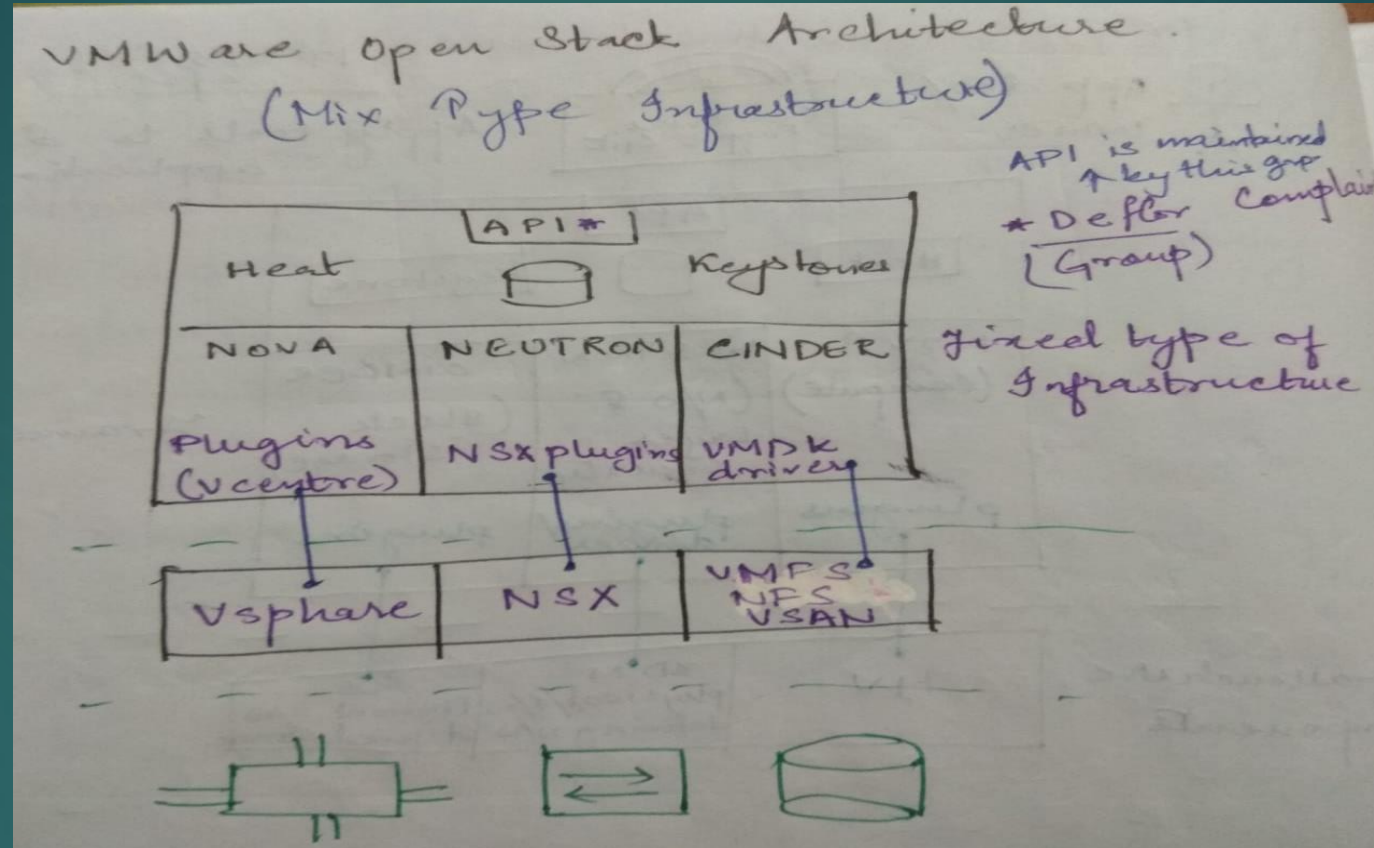 VMWare Open Stack Architecture.
(Mix Type Infrastructure)
API is maintained
↑ by this grp
* Defcor Complai
(Group)
API*
Heat
Keystones
NOVA
NEUTRON
CINDER
Fixed type of
Infrastructure
Plugins
(Vcentre)
NSX plugins
VMDK
driver
Vsphare
NSX
VMFS
NFS
VSAN